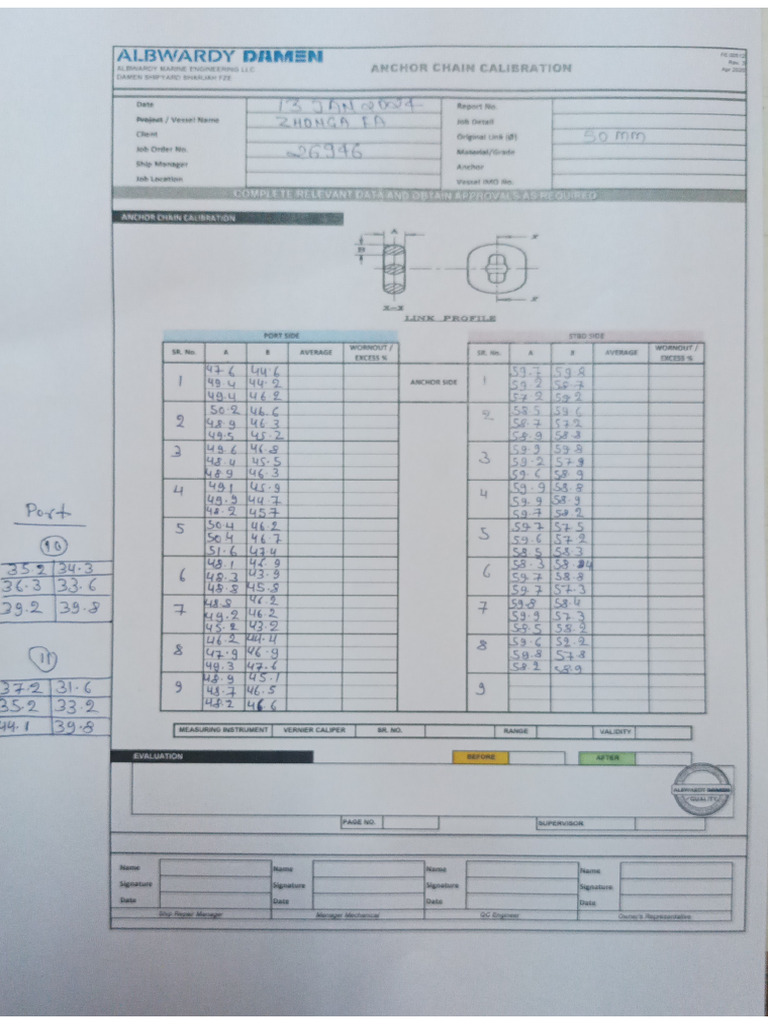 ALBWARDY DAMEN
ALBWARDY MARINE ENGINEERING LLC
DAMEN SHIPYARD SHARJAH FZE
ANCHOR CHAIN CALIBRATION
Rev. 3
Apr 2020
Date 13 JAN 2024 Report No.
Project / Vessel Name ZHONGA FA Job Detail
Client Original Link (Ø) 50 mm
Job Order No. 26946 Material/Grade
Ship Manager Anchor
Job Location Vessel IMO No.
COMPLETE RELEVANT DATA AND OBTAIN APPROVALS AS REQUIRED
ANCHOR CHAIN CALIBRATION
A
B
X
X
X-X
LINK PROFILE
PORT SIDE STBD SIDE
SR. No. A B AVERAGE WORNOUT / EXCESS % SR. No. A B AVERAGE WORNOUT / EXCESS %
ANCHOR SIDE
1 47.6 44.6 1 59.7 59.8
49.4 44.2 59.2 58.7
49.4 46.2 57.2 59.2
2 50.2 46.6 2 58.5 59.6
48.9 46.3 58.7 57.2
49.5 45.2 58.9 58.8
3 49.6 46.8 3 59.9 59.8
48.4 45.5 59.2 57.9
48.9 46.3 59.6 58.9
4 49.1 45.9 4 59.9 58.8
49.9 44.7 59.9 58.9
48.2 45.7 59.7 58.2
5 50.4 46.2 5 59.7 57.5
50.4 46.7 59.6 57.2
51.6 47.4 58.5 58.3
6 48.1 46.9 6 58.3 58.4
48.3 43.9 59.7 58.8
48.8 45.8 59.7 57.3
7 48.8 46.2 7 59.8 58.4
49.2 46.2 59.9 57.3
45.2 43.2 58.5 58.2
8 46.2 44.4 8 59.6 59.2
47.9 46.9 59.8 57.8
49.3 47.6 58.2 58.9
9 48.9 45.1 9
48.7 46.5
48.2 46.6
Port
10
35.2 34.3
36.3 33.6
39.2 39.8
11
37.2 31.6
35.2 33.2
44.1 39.8
MEASURING INSTRUMENT VERNIER CALIPER SR. NO. RANGE VALIDITY
EVALUATION BEFORE AFTER
ALBWARDY DAMEN
QUALITY
PAGE NO. SUPERVISOR
Name Name Name Name
Signature Signature Signature Signature
Date Date Date Date
Ship Repair Manager Manager Mechanical QC Engineer Owner's Representative